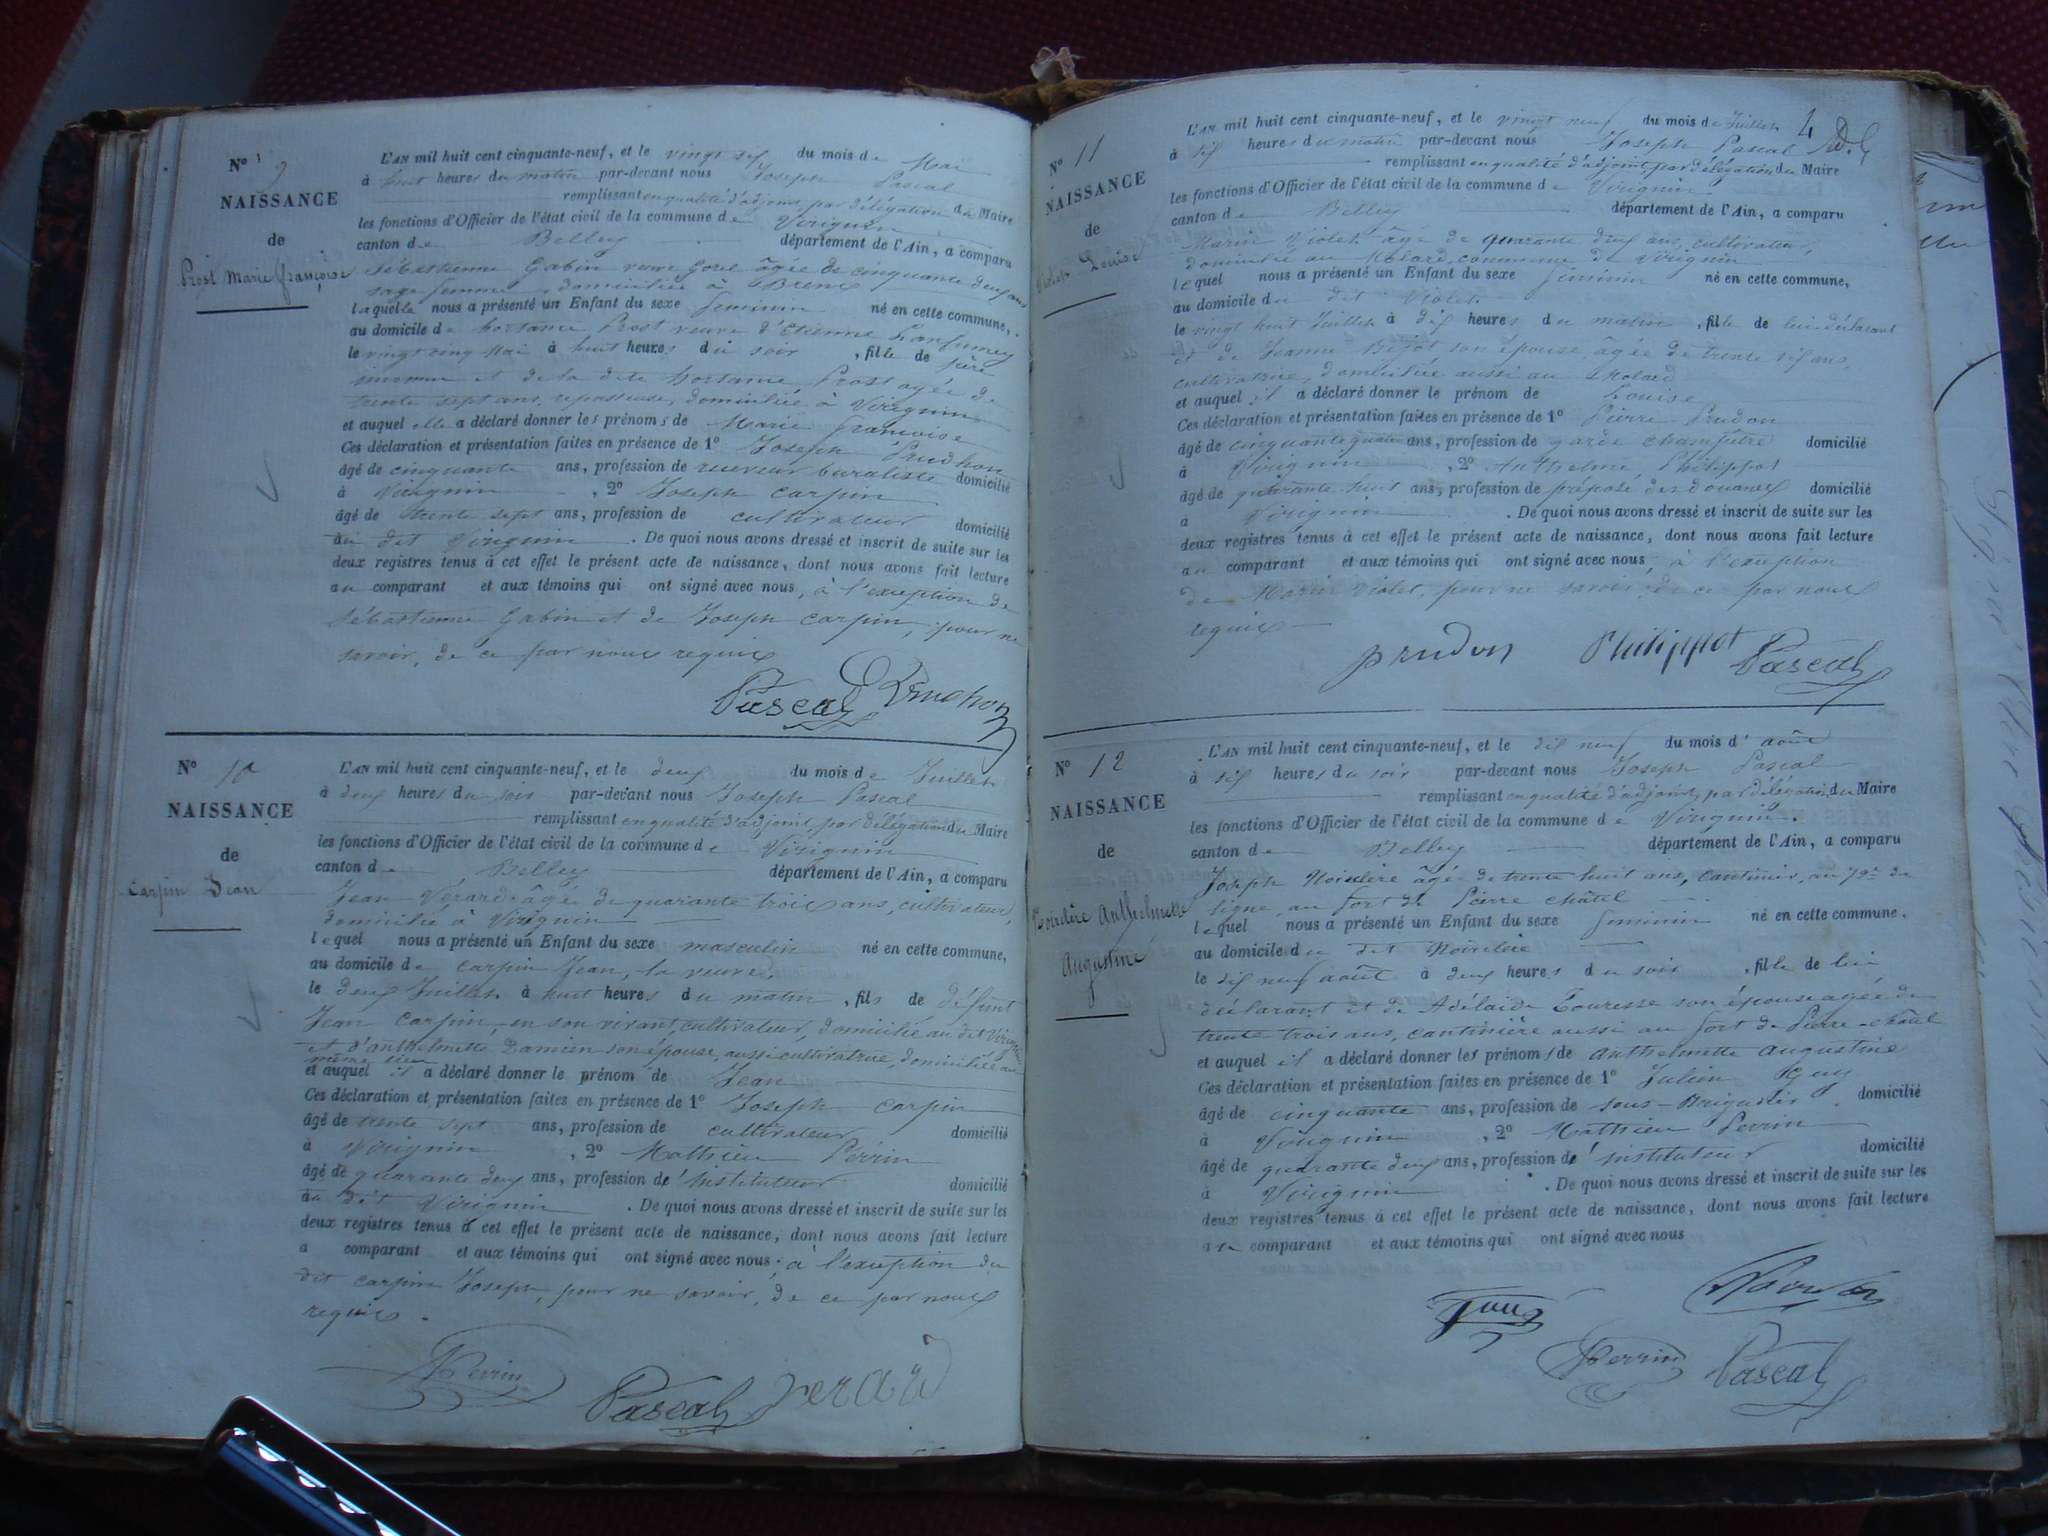 N° 9
NAISSANCE
de
Prost Marie Françoise
L'AN mil huit cent cinquante-neuf, et le vingt six du mois de Mai
à huit heures du matin par-devant nous Joseph Pascal
remplissant en qualité d'adjoint, par délégation du Maire
les fonctions d'Officier de l'état civil de la commune de Virignin
canton de Belley département de l'Ain, a comparu
Sébastienne Gabin veuve âgée de cinquante deux ans
sage femme, domiciliée à Brens
laquelle nous a présenté un Enfant du sexe féminin né en cette commune,
au domicile de hortance Prost veuve d'Etienne
le vingt cinq Mai à huit heures du soir, fille de père
inconnu et de la dite hortance Prost agée de
trente sept ans, repasseuse, domiciliée à Virignin
et auquel elle a déclaré donner les prénoms de Marie françoise
Ces déclaration et présentation faites en présence de 1° Joseph Prudhon
âgé de cinquante ans, profession de receveur buraliste domicilié
à Virignin, 2° Joseph carpin
âgé de trente sept ans, profession de cultivateur domicilié
au dit Virignin. De quoi nous avons dressé et inscrit de suite sur les
deux registres tenus à cet effet le présent acte de naissance, dont nous avons fait lecture
au comparant et aux témoins qui ont signé avec nous, à l'exception de
Sébastienne Gabin et de Joseph carpin, pour ne
savoir, de ce par nous requis
Pascal Prudhon
N° 10
NAISSANCE
de
Carpin Jean
L'AN mil huit cent cinquante-neuf, et le deux du mois de Juillet
à deux heures du soir par-devant nous Joseph Pascal
remplissant en qualité d'adjoint, par délégation du Maire
les fonctions d'Officier de l'état civil de la commune de Virignin
canton de Belley département de l'Ain, a comparu
Jean Vérard âgé de quarante trois ans, cultivateur,
domicilié à Virignin
lequel nous a présenté un Enfant du sexe masculin né en cette commune,
au domicile de carpin Jean, la veuve,
le deux Juillet à huit heures du matin, fils de défunt
Jean Carpin, en son vivant, cultivateur, domicilié au dit Virignin
et d'anthelmette Damien son épouse, aussi cultivatrice, domiciliée au
même lieu
et auquel il a déclaré donner le prénom de Jean
Ces déclaration et présentation faites en présence de 1° Joseph carpin
âgé de trente sept ans, profession de cultivateur domicilié
à Virignin, 2° Mathieu Perrin
âgé de quarante deux ans, profession d'instituteur domicilié
au dit Virignin. De quoi nous avons dressé et inscrit de suite sur les
deux registres tenus à cet effet le présent acte de naissance, dont nous avons fait lecture
a comparant et aux témoins qui ont signé avec nous, à l'exception du
dit carpin Joseph, pour ne savoir, de ce par nous
requis.
Perrin
Pascal Verard
4
N° 11
NAISSANCE
de
Violet Louise
L'AN mil huit cent cinquante-neuf, et le vingt neuf du mois de Juillet
à six heures du matin par-devant nous Joseph Pascal
remplissant en qualité d'adjoint, par délégation du Maire
les fonctions d'Officier de l'état civil de la commune de Virignin
canton de Belley département de l'Ain, a comparu
Marin Violet âgé de quarante deux ans, cultivateur,
domicilié au Molard, commune de Virignin
lequel nous a présenté un Enfant du sexe féminin né en cette commune,
au domicile du dit Violet
le vingt huit Juillet à dix heures du matin, fille de lui déclarant
et de Jeanne Bizot son épouse, âgée de trente six ans,
cultivatrice, domiciliée aussi au Molard
et auquel il a déclaré donner le prénom de Louise
Ces déclaration et présentation faites en présence de 1° Pierre Prudon
âgé de cinquante quatre ans, profession de garde champêtre domicilié
à Virignin, 2° Anthelme Philippot
âgé de quarante huit ans, profession de préposé des douanes domicilié
à Virignin. De quoi nous avons dressé et inscrit de suite sur les
deux registres tenus à cet effet le présent acte de naissance, dont nous avons fait lecture
au comparant et aux témoins qui ont signé avec nous, à l'exception
de Marin Violet, pour ne savoir, de ce par nous
requis
prudon Philippot Pascal
N° 12
NAISSANCE
de
Noirdère Anthelmette
Augustine
L'AN mil huit cent cinquante-neuf, et le dix neuf du mois d'août
à six heures du soir par-devant nous Joseph Pascal
remplissant en qualité d'adjoint, par délégation du Maire
les fonctions d'Officier de l'état civil de la commune de Virignin.
canton de Belley département de l'Ain, a comparu
Joseph âgé de trente huit ans, cantinier, au 79e de
ligne, au fort de Pierre châtel
lequel nous a présenté un Enfant du sexe féminin né en cette commune.
au domicile du dit
le dix neuf août à deux heures du soir, fille de lui
déclarant et de Adélaïde Touresse son épouse agée de
trente trois ans, cantinière aussi au fort de Pierre-châtel
et auquel il a déclaré donner les prénoms de anthelmette augustine
Ces déclaration et présentation faites en présence de 1° Julien
âgé de cinquante ans, profession de sous-Brigadier domicilié
à Virignin, 2° Mathieu Perrin
âgé de quarante deux ans, profession d'instituteur domicilié
à Virignin. De quoi nous avons dressé et inscrit de suite sur les
deux registres tenus à cet effet le présent acte de naissance, dont nous avons fait lecture
au comparant et aux témoins qui ont signé avec nous
Perrin Pascal